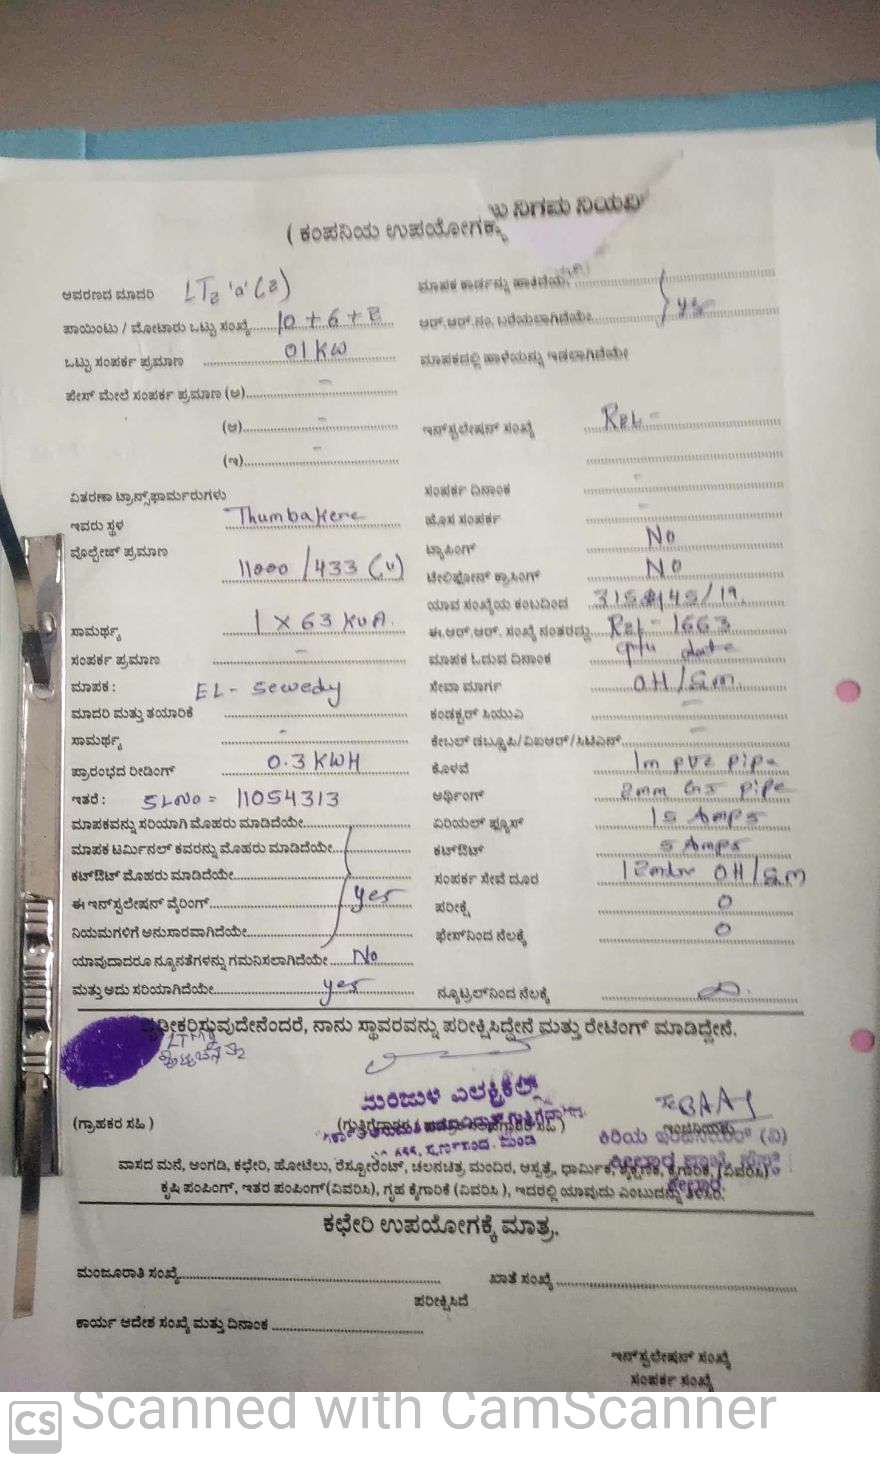 ನಿಗಮ ನಿಯಮಿ
( ಕಂಪನಿಯ ಉಪಯೋಗಕ್ಕ
ಆವರಣದ ಮಾದರಿ LT2 'a' (2) ಮಾಪಕ ಕಾರ್ಡನ್ನು ಹಾಕಿದೆಯೇ
ಪಾಯಿಂಟು / ಮೋಟಾರು ಒಟ್ಟು ಸಂಖ್ಯೆ 10 + 6 + ಆರ್.ಆರ್.ನಂ. ಬರೆಯಲಾಗಿದೆಯೇ yes
ಒಟ್ಟು ಸಂಪರ್ಕ ಪ್ರಮಾಣ 01 KW ಮಾಪಕದಲ್ಲಿ ಹಾಳೆಯನ್ನು ಇಡಲಾಗಿದೆಯೇ
ಫೇಸ್ ಮೇಲೆ ಸಂಪರ್ಕ ಪ್ರಮಾಣ (ಅ) -
(ಆ) - ಇನ್‌ಸ್ಟಲೇಷನ್ ಸಂಖ್ಯೆ
(ಇ) -
ವಿತರಣಾ ಟ್ರಾನ್ಸ್‌ಫಾರ್ಮರುಗಳು ಸಂಪರ್ಕ ದಿನಾಂಕ -
ಇವರು ಸ್ಥಳ Thumbakere ಹೊಸ ಸಂಪರ್ಕ -
ವೋಲ್ಟೇಜ್ ಪ್ರಮಾಣ 11000 / 433 (v) ಟ್ಯಾಪಿಂಗ್ No
ಟೇಲಿಫೋನ್ ಕ್ರಾಸಿಂಗ್ No
ಯಾವ ಸಂಖ್ಯೆಯ ಕಂಬದಿಂದ
ಸಾಮರ್ಥ್ಯ 1 X 63 KVA. ಈ.ಆರ್.ಆರ್. ಸಂಖ್ಯೆ ನಂತರದ್ದು 1663
ಸಂಪರ್ಕ ಪ್ರಮಾಣ - ಮಾಪಕ ಓದುವ ದಿನಾಂಕ date
ಮಾಪಕ : EL - Sewedy ಸೇವಾ ಮಾರ್ಗ OH/S.M.
ಮಾದರಿ ಮತ್ತು ತಯಾರಿಕೆ ಕಂಡಕ್ಟರ್ ಸಿಯುಎ -
ಸಾಮರ್ಥ್ಯ - ಕೇಬಲ್ ಡಬ್ಲೂಪಿ/ವಿಐಆರ್/ಸಿಟಿಎಸ್ -
ಪ್ರಾರಂಭದ ರೀಡಿಂಗ್ 0.3 KWH ಕೊಳವೆ 1m pvc pipe
ಇತರೆ : SLNo = 11054313 ಅರ್ಥಿಂಗ್ 2mm GI pipe
ಮಾಪಕವನ್ನು ಸರಿಯಾಗಿ ಮೊಹರು ಮಾಡಿದೆಯೇ ಏರಿಯಲ್ ಫ್ಯೂಸ್ 15 Amps
ಮಾಪಕ ಟರ್ಮಿನಲ್ ಕವರನ್ನು ಮೊಹರು ಮಾಡಿದೆಯೇ ಕಟ್‌ಔಟ್ 5 Amps
ಕಟ್‌ಔಟ್ ಮೊಹರು ಮಾಡಿದೆಯೇ ಸಂಪರ್ಕ ಸೇವೆ ದೂರ OH/S.M
ಈ ಇನ್‌ಸ್ಟಲೇಷನ್ ವೈರಿಂಗ್ yes ಪರೀಕ್ಷೆ 0
ನಿಯಮಗಳಿಗೆ ಅನುಸಾರವಾಗಿದೆಯೇ ಫೇಸ್‌ನಿಂದ ನೆಲಕ್ಕೆ 0
ಯಾವುದಾದರೂ ನ್ಯೂನತೆಗಳನ್ನು ಗಮನಿಸಲಾಗಿದೆಯೇ No
ಮತ್ತು ಅದು ಸರಿಯಾಗಿದೆಯೇ yes ನ್ಯೂಟ್ರಲ್‌ನಿಂದ ನೆಲಕ್ಕೆ
ದೃಢೀಕರಿಸುವುದೇನೆಂದರೆ, ನಾನು ಸ್ಥಾವರವನ್ನು ಪರೀಕ್ಷಿಸಿದ್ದೇನೆ ಮತ್ತು ರೇಟಿಂಗ್ ಮಾಡಿದ್ದೇನೆ.
ಮಂಜುಳ ಎಲೆಕ್ಟ್ರಿಕಲ್ಸ್
(ಗ್ರಾಹಕರ ಸಹಿ )
ಕಿರಿಯ ಇಂಜಿನಿಯರ್ (ವಿ)
ವಾಸದ ಮನೆ, ಅಂಗಡಿ, ಕಛೇರಿ, ಹೋಟೆಲು, ರೆಸ್ಟೋರೆಂಟ್, ಚಲನಚಿತ್ರ ಮಂದಿರ, ಆಸ್ಪತ್ರೆ, ಧಾರ್ಮಿಕ, ಶೈಕ್ಷಣಿಕ, ಕೈಗಾರಿಕೆ, (ವಿವರಿಸಿ)
ಕೃಷಿ ಪಂಪಿಂಗ್, ಇತರ ಪಂಪಿಂಗ್(ವಿವರಿಸಿ), ಗೃಹ ಕೈಗಾರಿಕೆ (ವಿವರಿಸಿ ), ಇದರಲ್ಲಿ ಯಾವುದು ಎಂಬುದನ್ನು ತಿಳಿಸಿರಿ.
ಕಛೇರಿ ಉಪಯೋಗಕ್ಕೆ ಮಾತ್ರ.
ಮಂಜೂರಾತಿ ಸಂಖ್ಯೆ ಖಾತೆ ಸಂಖ್ಯೆ
ಪರೀಕ್ಷಿಸಿದೆ
ಕಾರ್ಯ ಆದೇಶ ಸಂಖ್ಯೆ ಮತ್ತು ದಿನಾಂಕ
ಇನ್‌ಸ್ಟಲೇಷನ್ ಸಂಖ್ಯೆ
ಸಂಪರ್ಕ ಸಂಖ್ಯೆ
CS Scanned with CamScanner